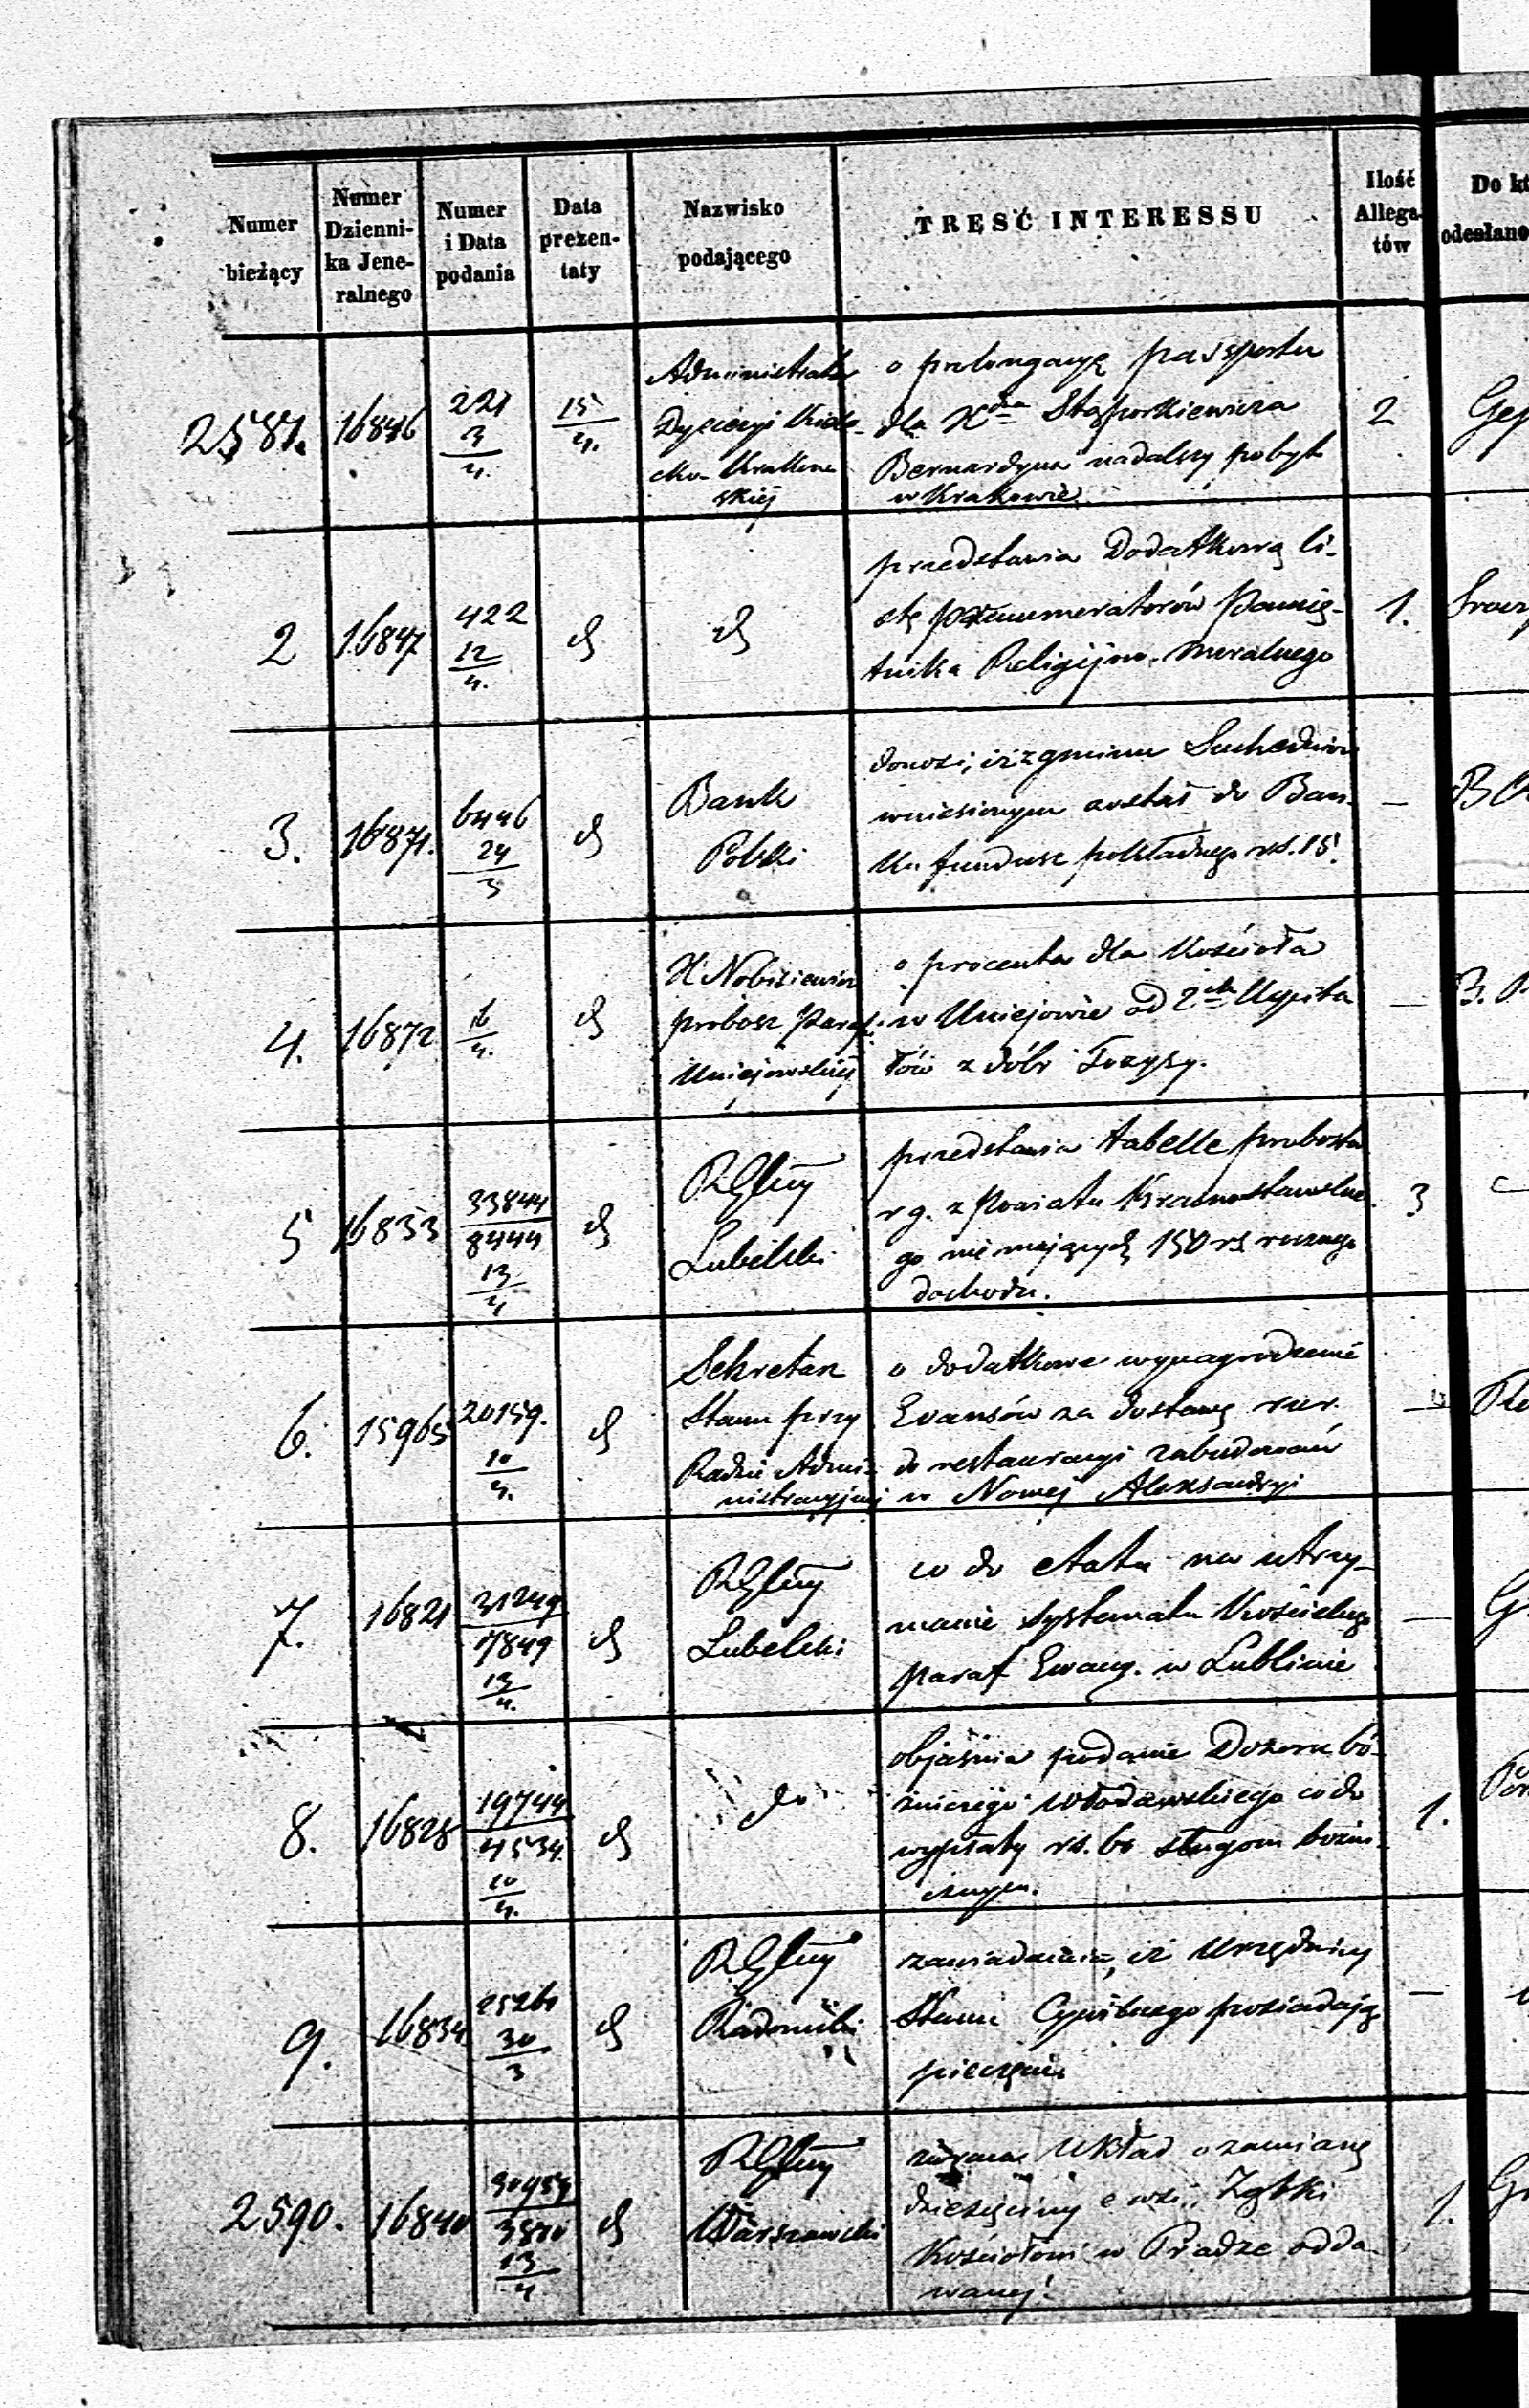 Numer
bieżący
Numer
Dzienni-
ka Jene-
ralnego
Numer
i Data
podania
Data
prezen-
taty
Nazwisko
podającego
TREŚĆ INTERESSU
Ilość
Allega-
tów
Do kt
odesłano
2581.
16846
221
3
4.
15
4.
Administrator
Dyecezyi Kiele-
cko-Krakow-
skiej
o prolongacyę passportu
dla Xdza Stąporkiewicza
Bernardyna nadalszy pobyt
w Krakowie.
2
2
16847
422
12
4.
przedstawia Dodatkową li-
stę prenumeratorów Pamię-
tnika Religijno-Moralnego
1.
3.
16871.
6446
24
3
Bank
Polski
donosi, iż z gminu Suchedniów
wniesionym został do Ban-
ku fundusz pokładnego rs. 15.
—
4.
16872
16
4.
X. Nobisiewicz
probosz Paraf:
Uniejowskiej
o procenta dla Kościoła
w Uniejowie od 2ch Kapita
łów z dóbr
—
5
16833
33844
8444
13
4
Lubelski
przedstawia tabelle probostw
r g. z Powiatu Krasnostawskie
go nie mających 150 rs rocznego
dochodu.
3
6.
15965
20159.
10
4.
Sekretarz
Stanu przy
Radzie Admi-
nistracyjnej
o dodatkowe wynagrodzenie
Evansów za dostawę rur
do restauracyi zabudowań
w Nowej Aleksandryi
—
7.
16821
31249
7849
13
4.
Lubelski
co do etatu na utrzy-
manie systematu Kościelnego
paraf Ewang. w Lublinie
—
8.
16828
19744
4534
10
4.
do
objaśnia podanie Dozoru bó-
żniczego Włodawskiego co do
wypłaty rs. 60 sługom bożni-
cznym.
1.
9.
16834
25260
30
3
Radomski
zawiadamia, iż Urzędnicy
Stanu Cywilnego posiadają
pieczęcie
—
2590.
16840
30954
3870
13
4
Warszawski
zwraca Układ o zamianę
dziesięciny z wsi Ząbki
Kościołowi w Pradze odda-
wanej.
1.